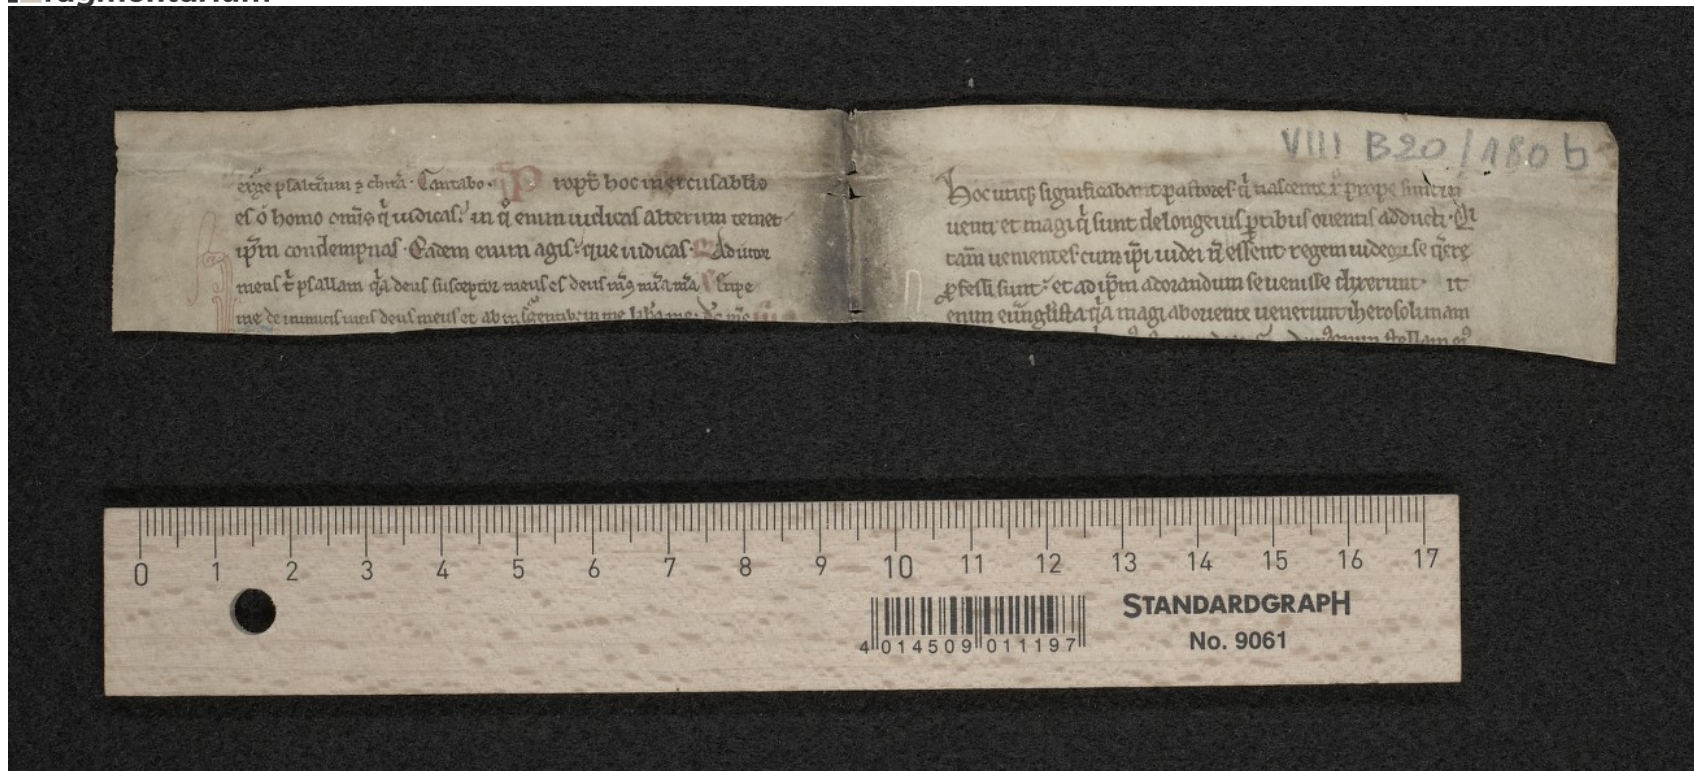 ragmentarium
VIII B20/180 b
exurge psaltium ⁊ chita · Cantabo · P ropt̄ hoc inexcusabilis
es ó homo om̄is q̇ iudicas. in q̊ enim iudicas alterum temet
ip̄m condempnas · Eadem enim agis: que iudicas · Adiutor
meus t̄ psallam q̇a deus susceptor meus es deus m̄s m̄ia m̄a Eripe
me de inimicis meis deus meus et ab insurgentib: in me lib̄a me:
Hoc utiq; significabant pastores q̇ nascente x̄ prope sunt in
uenti et magi q̇ sunt de longeius ptibus orientis adducti · Qi
tam̄ uenientes cum ip̄i iudei n̄ essent regem iudeor̄ se q̄rere
pfessi sunt: et ad ip̄m adorandum se uenisse dixerunt it
enim eu̅ng̅lista q̇a magi ab oriente uenerunt iherosolimam
stellam ei᾽
0 1 2 3 4 5 6 7 8 9 10 11 12 13 14 15 16 17
STANDARDGRAPH
No. 9061
4 014509 011197